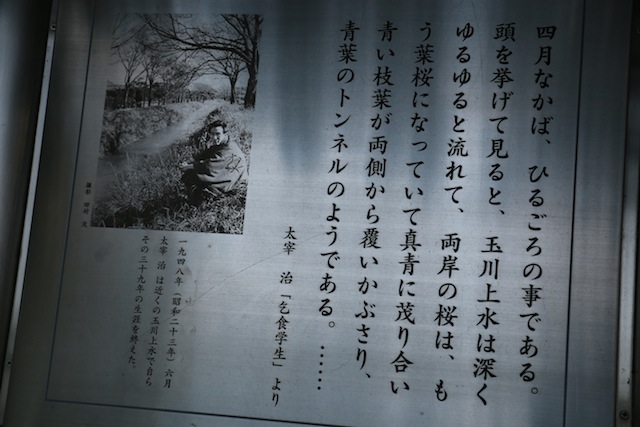 四月なかば、ひるごろの事である。
頭を挙げて見ると、玉川上水は深く
ゆるゆると流れて、両岸の桜は、も
う葉桜になっていて真青に茂り合い
青い枝葉が両側から覆いかぶさり、
青葉のトンネルのようである。……
太宰 治「乞食学生」より
一九四八年(昭和二十三年)六月
太宰 治 は近くの玉川上水で自ら
その三十九年の生涯を終えた。
撮影